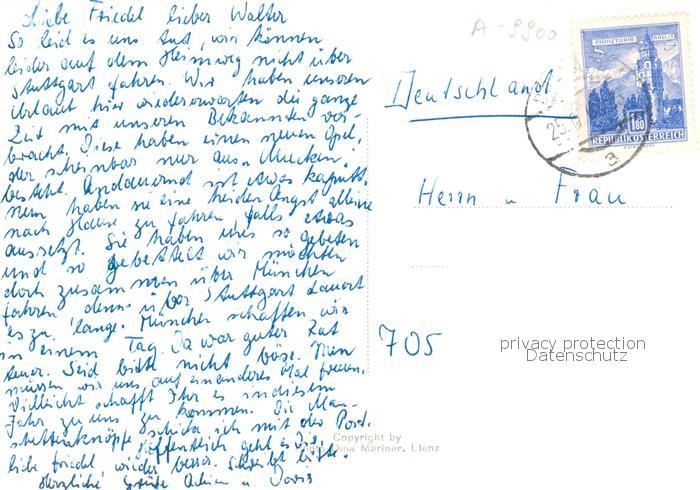 Liebe Friedel lieber Walter
So leid es uns tut, wir können
leider auf dem Heimweg nicht über
Stuttgart fahren. Wir haben unseren
Urlaub hier wiedererwarten die ganze
Zeit mit unseren Bekannten ver-
bracht. Diese haben einen neuen Opel,
der scheinbar nur aus Mucken
besteht. Andauernd ist etwas kaputt.
Nun haben sie eine heiden Angst alleine
nach Hause zu fahren, falls etwas
aussetzt. Sie haben uns so gebeten
und so gebettelt wir möchten
doch zusammen über München
fahren denn über Stuttgart dauert
es zu lange. München schaffen wir
in einem Tag. Da war guter Rat
teuer. Seid bitte nicht böse. Nun
müssen wir uns auf ein anderes Mal freuen.
Vielleicht schafft Ihr es in diesem
Jahr zu uns zu kommen. Die Man-
schettenknöpfe schicke ich mit der Post.
Hoffentlich geht es Dir,
liebe Friedel, wieder besser. Schreibt bitte.
Herzliche Grüße u. Doris
A-9900
MÜNZTURM HALL i. T.
1.80
REPUBLIK ÖSTERREICH
Deutschland
Herrn u Frau
705
privacy protection
Datenschutz
Copyright by
Dina Mariner, Lienz